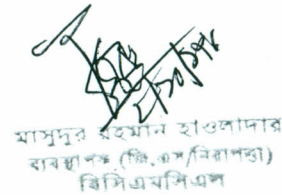 মাসুদুর রহমান হাওলাদার
ব্যবস্থাপক (জি.এস/নিরাপত্তা)
বিসিএমসিএল